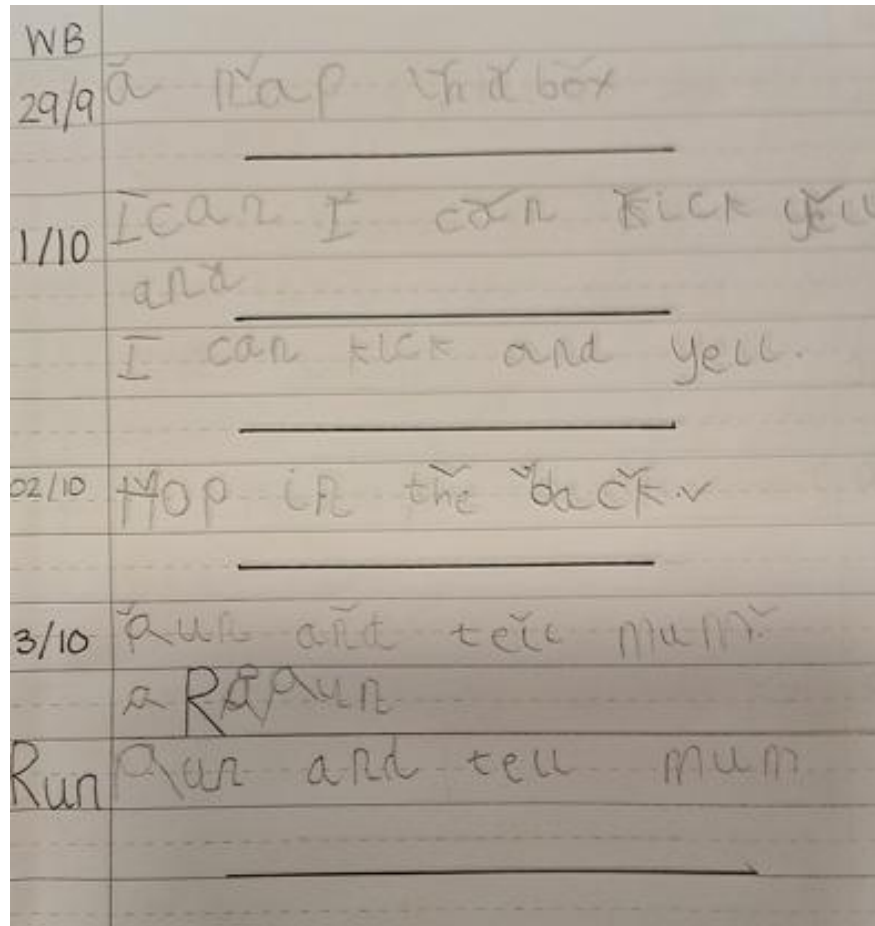 WB
29/9 a map box
1/10 I can I can kick yell
and
I can kick and yell.
02/10 Hop in the back.
3/10 Run and tell mum.
R Run
Run Run and tell mum